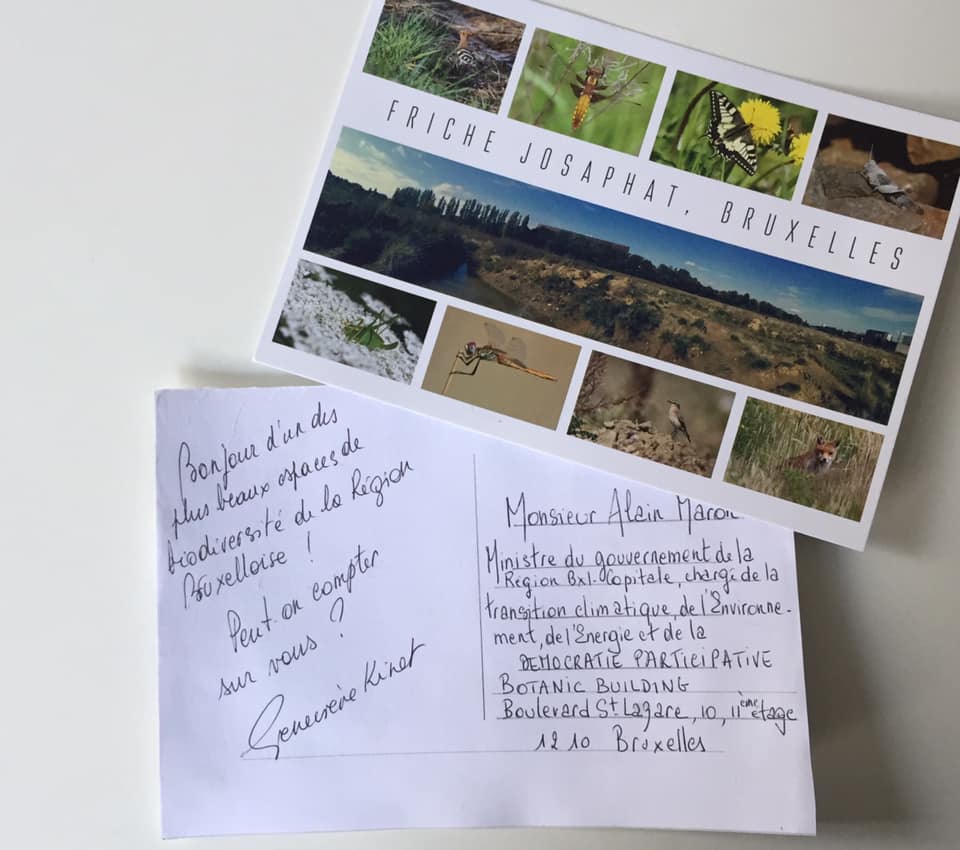 FRICHE JOSAPHAT, BRUXELLES
Bonjour d'un des
plus beaux espaces de
biodiversité de la Région
Bruxelloise !
Peut-on compter
sur vous ?
Geneviève Kinet
Monsieur Alain Maron
Ministre du gouvernement de la
Région Bxl-Capitale, chargé de la
transition climatique, de l'Environne-
ment, de l'Energie et de la
DEMOCRATIE PARTICIPATIVE
BOTANIC BUILDING
Boulevard St Lazare, 10, 11ème étage
1210 Bruxelles